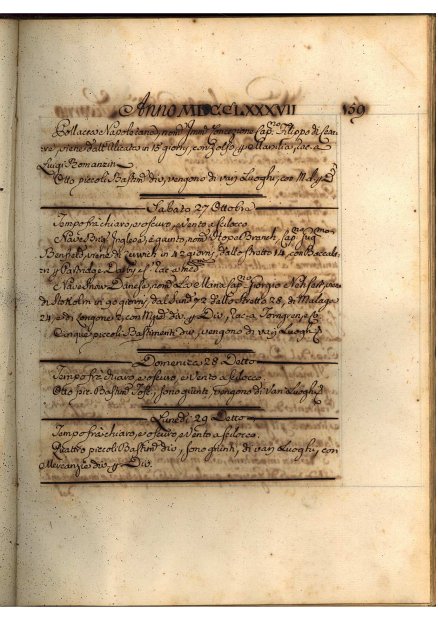 Anno MDCCLXXXVII 159
Pollacca Napoletana, nom. Imm. Concezione Cap.no Filippo di
re, viene dall' Alicata in 15 giorni, con Zolfo, p Marsilia, rac. a
Luigi Romanzin
Otto piccoli Bastim.ti div., vengono di varj Luoghi, con
Sabato 27 Ottobre
Tempo frà chiaro, e oscuro, e Vento a scilocco.
Nave Inglese, è giunto, nom. Hopel Branch, Cap.no
Benfeld, viene di in 42 giorni, dallo Stretto 14, con Baccalà,
ri p Partridge,
Nave Danese, nom. La Maria Cap.no Giorgio viene
di Stokolm in 90 giorni, dal Sund 72 dallo Stretto 28, di Malaga
24, e di Longone 2, con div. p Div., rac. a Torngren, e
Cinque piccoli Bastimenti div., vengono di varj Luoghi
Domenica 28 Detto
Tempo frà chiaro, e oscuro, e Vento a scilocco.
Otto pic. Bastim.ti Tosc., sono giunti, vengono di Varj Luoghi
Lunedì 29 Detto
Tempo frà chiaro, e oscuro, e Vento a scilocco.
Quattro piccoli Bastim.ti div., sono giunti, di varj Luoghi, con
Mercanzie div. p Div.